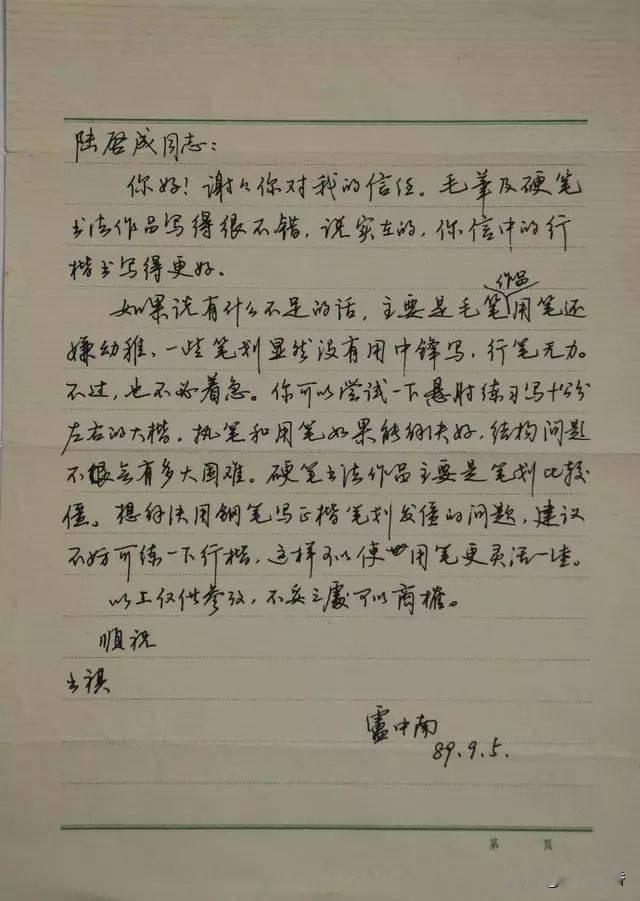 陆启成同志：
你好！谢々你对我的信任。毛筆及硬笔
书法作品写得很不错，说实在的，你信中的行
楷书写得更好。
作品
如果说有什么不足的话，主要是毛笔用笔还
嫌幼稚，一些笔划显然没有用中锋写，行笔无力。
不过，也不必着急。你可以尝试一下悬肘练习写十公分
左右的大楷。执笔和用笔如果能解决好，结构问题
不会有多大困难。硬笔书法作品主要是笔划比较
僵。想解决用钢笔写正楷笔划发僵的问题，建议
不妨可练一下行楷，这样可以使用笔更灵活一些。
以上仅供参考，不妥之處可以商榷。
順祝
书祺
盧中南
89.9.5.
第 页